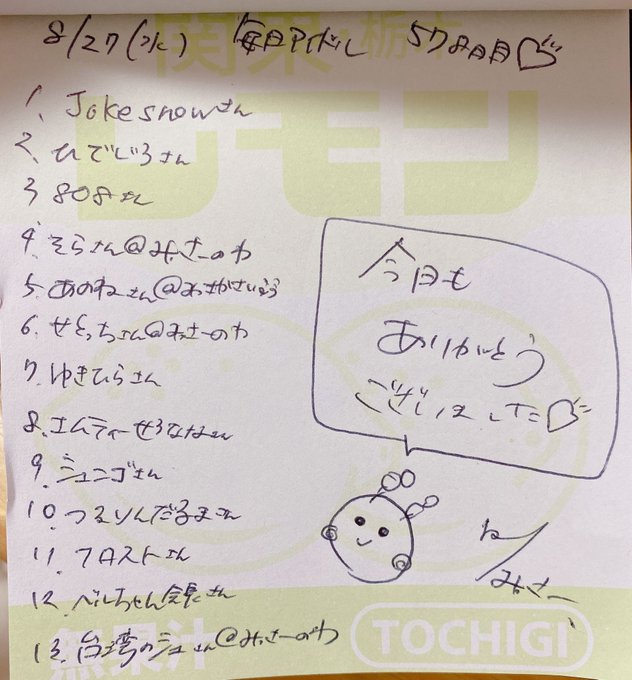 8/27(水) 毎日アイドル 578日目♡
関東・栃木
レモン
1. Jokesnowさん
2. ひでじろさん
3 808さん
4. そらさん@みさーのわ
5. あのねさん@
6. せとっちさん@みさーのわ
7. ゆきひらさん
8. エムティーせろなねさん
9. ジュニゴさん
10 つるりんだるまさん
11. フロストさん
12. べんちゃん会長さん
13. 台湾のジュさん@みさーのわ
今日も
ありがとう
ございました♡
みさー
無果汁
TOCHIGI